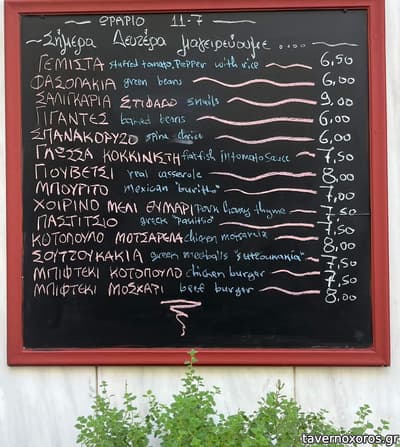 ΩΡΑΡΙΟ 11-7
Σήμερα Δευτέρα μαγειρεύουμε ....
ΓΕΜΙΣΤΑ stuffed tomato, Pepper with rice 6,50
ΦΑΣΟΛΑΚΙΑ green beans 6,00
ΣΑΛΙΓΚΑΡΙΑ ΣΤΙΦΑΔΟ snails 9,00
ΓΙΓΑΝΤΕΣ baked beans 6,00
ΣΠΑΝΑΚΟΡΥΖΟ 6,00
ΓΛΩΣΣΑ ΚΟΚΚΙΝΙΣΤΗ flatfish in tomato sauce 7,50
ΓΙΟΥΒΕΤΣΙ veal casserole 8,00
ΜΠΟΥΡΙΤΟ mexican "buritto" 7,00
ΧΟΙΡΙΝΟ ΜΕΛΙ ΘΥΜΑΡΙ Pork honey thyme 7,50
ΠΑΣΤΙΤΣΙΟ greek "pasitso" 7,50
ΚΟΤΟΠΟΥΛΟ ΜΟΤΣΑΡΕΛΑ chicken motsarela 8,00
ΣΟΥΤΖΟΥΚΑΚΙΑ green meatballs "suttoukakia" 7,50
ΜΠΙΦΤΕΚΙ ΚΟΤΟΠΟΥΛΟ chicken burger 7,50
ΜΠΙΦΤΕΚΙ ΜΟΣΧΑΡΙ beef burger 8,00
tavernoxoros.gr